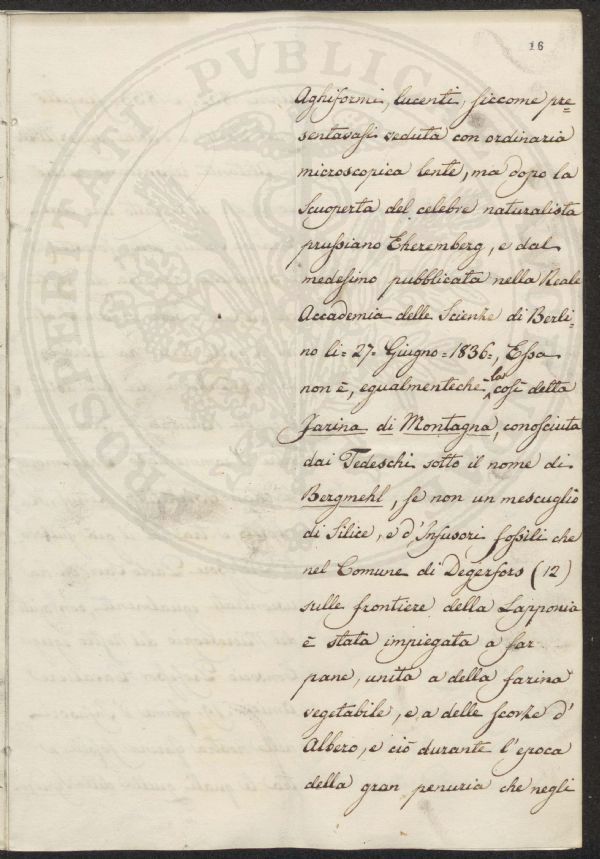 16
Aghiformi, lucenti, siccome pre=
sentavasi veduta con ordinaria
microscopica lente, ma dopo la
scuoperta del celebre naturalista
prussiano Eheremberg, e dal
medesimo pubblicata nella Reale
Accademia delle Scienze di Berli=
no li= 27= Giugno =1836=, Essa
non è, egualmenteche la così detta
Farina di Montagna, conosciuta
dai Tedeschi sotto il nome di
Bergmehl, se non un mescuglio
di Silice, e d'Infusori fossili che
nel Comune di Degerfors (12)
sulle frontiere della Lapponia
è stata impiegata a far
pane, unita a della farina
vegetabile, e a delle scorze d'
Albero, e ciò durante l'epoca
della gran penuria che negli
PROSPERITATI PVBLICAE